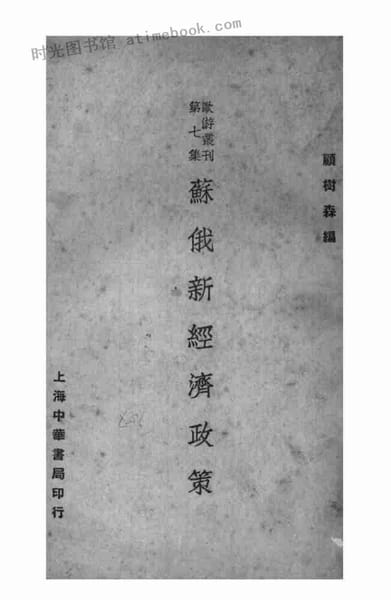 时光图书馆 atimebook.com
顧樹森編
歐游叢刊
第七集
蘇俄新經濟政策
上海中華書局印行